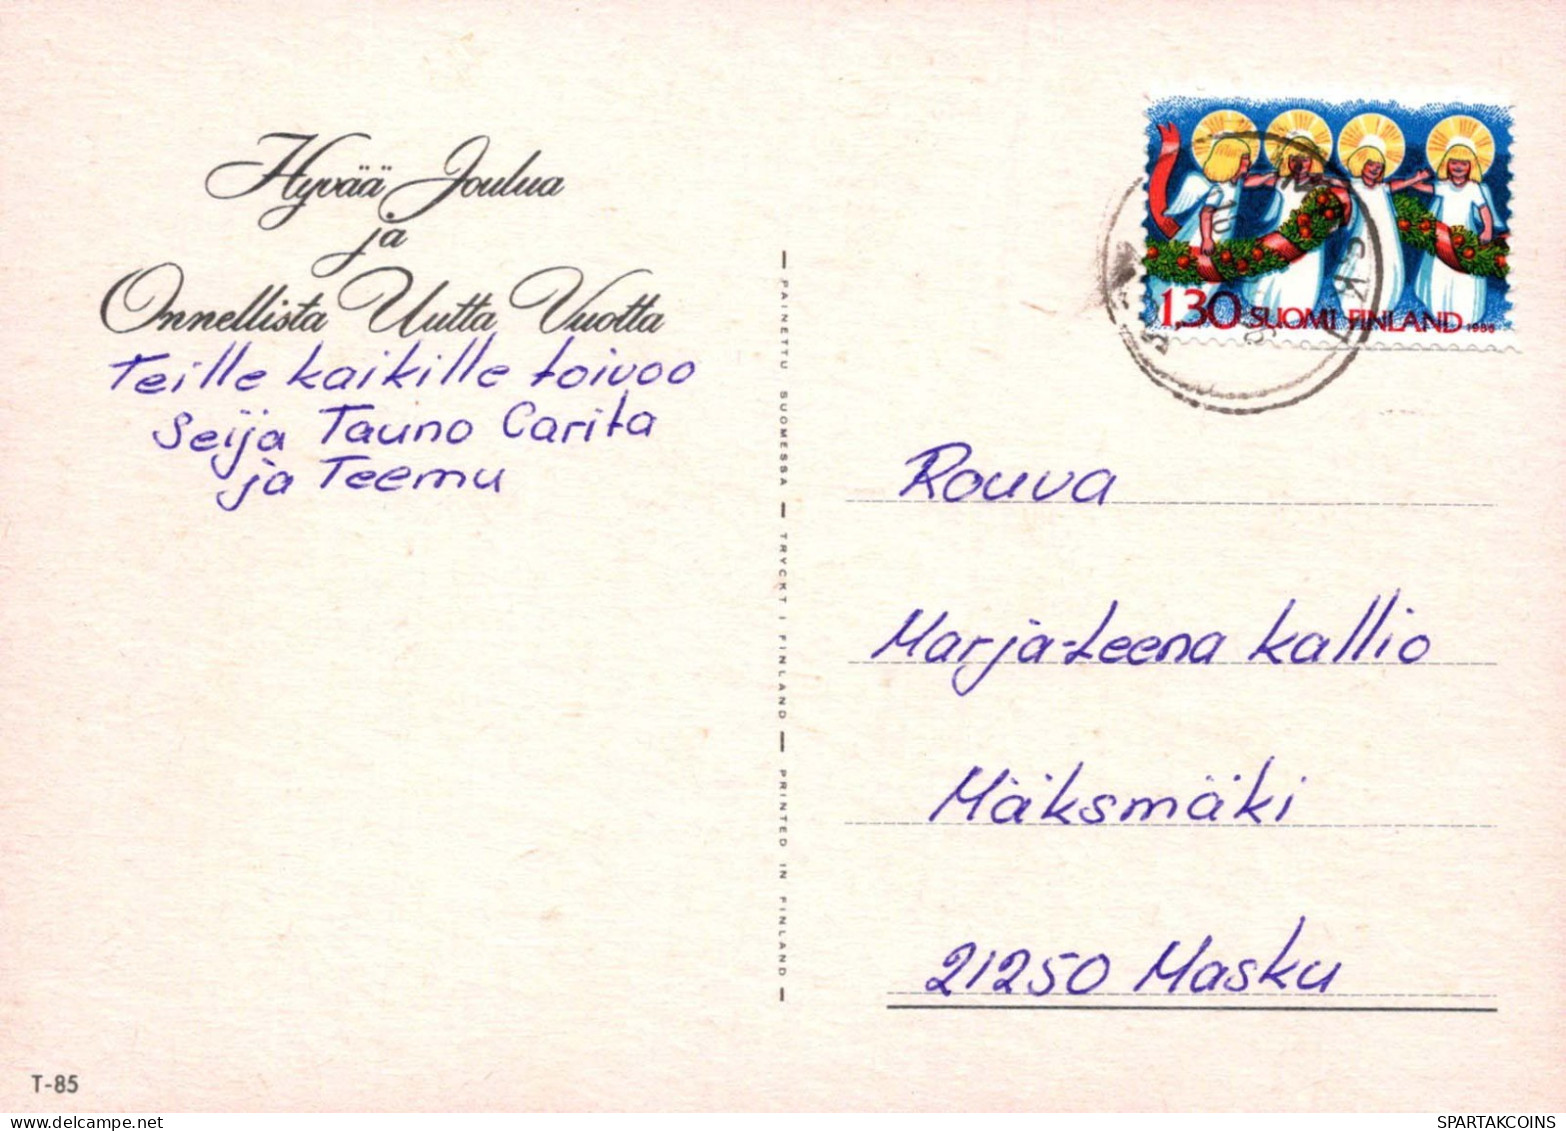 Hyvää Joulua
ja
Onnellista Uutta Vuotta
Teille kaikille toivoo
Seija Tauno Carita
ja Teemu
T-85
PAINETTU SUOMESSA — TRYCKT I FINLAND — PRINTED IN FINLAND
1,30 SUOMI FINLAND 1986
Rouva
Marja-Leena Kallio
Mäksmäki
21250 Masku
SPARTAKCOINS